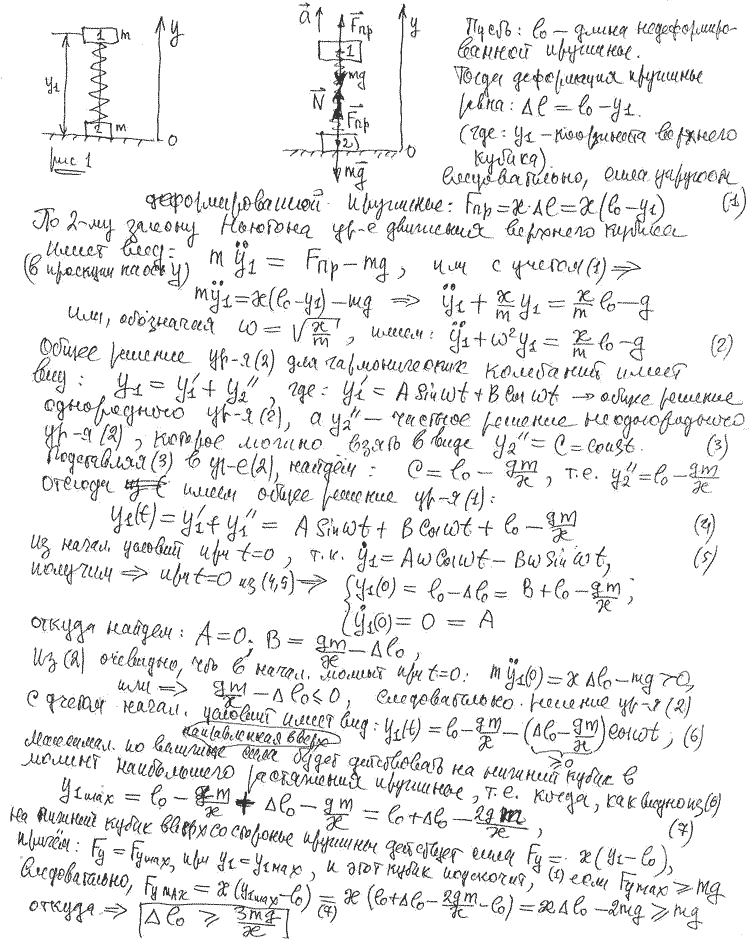 1 m y
y₁
1 m
0
рис 1
a⃗ F⃗пр y
1
mg⃗
N⃗ F⃗пр
2
0
mg⃗
Пусть: l₀ – длина недеформиро-
ванной пружины.
Тогда деформация пружины
равна: Δl = l₀ – y₁.
(где: y₁ – координата верхнего
кубика)
Следовательно, сила упругости
деформированной пружины: Fпр = ϰ·Δl = ϰ(l₀–y₁) (1)
По 2-му закону Ньютона ур-е движения верхнего кубика
имеет вид:
(в проекции на ось y) mÿ₁ = Fпр – mg, или с учетом (1) ⇒
mÿ₁ = ϰ(l₀–y₁) – mg ⇒ ÿ₁ + ϰ/m y₁ = ϰ/m l₀ – g
или, обозначая ω = √(ϰ/m), имеем: ÿ₁ + ω²y₁ = ϰ/m l₀ – g (2)
Общее решение ур-я (2) для гармонических колебаний имеет
вид: y₁ = y₁′ + y₂″, где: y₁′ = A Sinωt + B Cosωt → общее решение
однородного ур-я (2), а y₂″ – частное решение неоднородного
ур-я (2), которое можно взять в виде y₂″ = C = const. (3)
Подставляя (3) в ур-е (2), найдём: C = l₀ – gm/ϰ, т.е. y₂″ = l₀ – gm/ϰ
Отсюда имеем общее решение ур-я (1):
y₁(t) = y₁′ + y₁″ = A Sinωt + B Cosωt + l₀ – gm/ϰ (4)
Из начал. условий при t=0, т.к. ẏ₁ = Aω Cosωt – Bω Sinωt, (5)
получим ⇒ при t=0 из (4,5) → { y₁(0) = l₀ – Δl₀ = B + l₀ – gm/ϰ;
ẏ₁(0) = 0 = A
откуда найдем: A=0; B = gm/ϰ – Δl₀,
Из (2) очевидно, что в начал. момент при t=0: mÿ₁(0) = ϰΔl₀ – mg ≥ 0,
или ⇒ gm/ϰ – Δl₀ ≤ 0, следовательно решение ур-я (2)
с учетом начал. условий имеет вид: y₁(t) = l₀ – gm/ϰ – (Δl₀ – gm/ϰ) cosωt; (6)
≥0
направленная вверх
Максимал. по величине сила будет действовать на нижний кубик в
момент наибольшего растяжения пружины, т.е. когда, как видно из (6)
y₁max = l₀ – gm/ϰ + Δl₀ – gm/ϰ = l₀ + Δl₀ – 2gm/ϰ, (7)
на нижний кубик вверх со стороны пружины действует сила Fy = ϰ(y₁–l₀),
(1)
причём: Fy = Fymax, при y₁ = y₁max, и этот кубик подскочит, если Fymax ≥ mg
Следовательно, Fymax = ϰ(y₁max–l₀) = (7) ϰ(l₀+Δl₀–2gm/ϰ–l₀) = ϰΔl₀ – 2mg ≥ mg
откуда ⇒ Δl₀ ≥ 3mg/ϰ